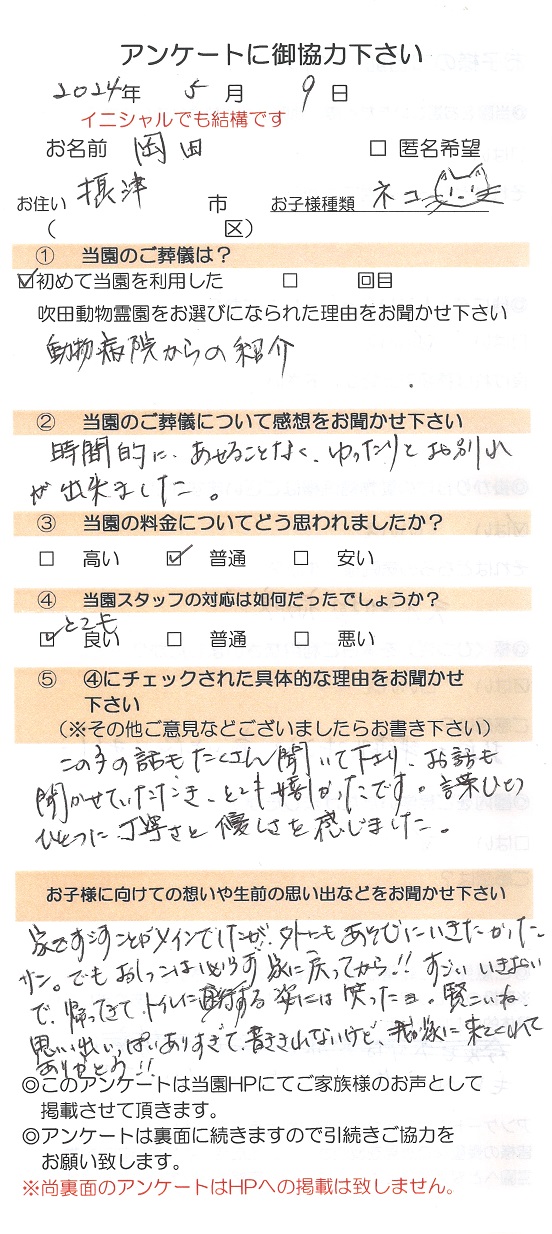 アンケートに御協力下さい
2024年 5月 9日
イニシャルでも結構です
お名前 岡田 □ 匿名希望
お住い 摂津 市 お子様種類 ネコ
( 区)
① 当園のご葬儀は？
☑初めて当園を利用した □ 回目
吹田動物霊園をお選びになられた理由をお聞かせ下さい
動物病院からの紹介
② 当園のご葬儀について感想をお聞かせ下さい
時間的に、あせることなく、ゆったりとお別れ
が出来ました。
③ 当園の料金についてどう思われましたか？
□ 高い ☑ 普通 □ 安い
④ 当園スタッフの対応は如何だったでしょうか？
☑ とても良い □ 普通 □ 悪い
⑤ ④にチェックされた具体的な理由をお聞かせ
下さい
（※その他ご意見などございましたらお書き下さい）
この子の話もたくさん聞いて下さり、お話も
聞かせていただき、とても嬉しかったです。言葉ひとつ
ひとつに丁寧さと優しさを感じました。
お子様に向けての想いや生前の思い出などをお聞かせ下さい
家ですごすことがメインでしたが、外にもあそびにいきたかった
でもおしっこは 家に戻ってから!! すごいいきおい
で、帰ってきて、トイレに する姿には笑ったョ。賢こいね。
思い出いっぱいありすぎて、書ききれないけど、我が家に来てくれて
ありがとう!!
◎このアンケートは当園HPにてご家族様のお声として
掲載させて頂きます。
◎アンケートは裏面に続きますので引続きご協力を
お願い致します。
※尚裏面のアンケートはHPへの掲載は致しません。